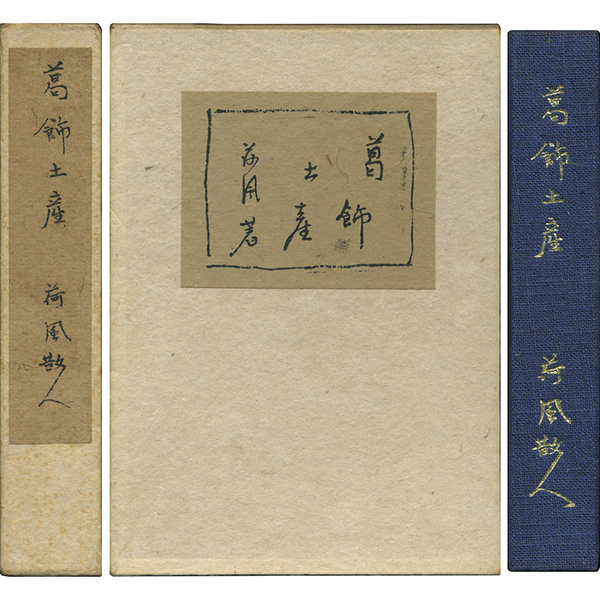 葛飾土産
荷風散人
葛飾
土産
荷風著
葛飾土産
荷風散人